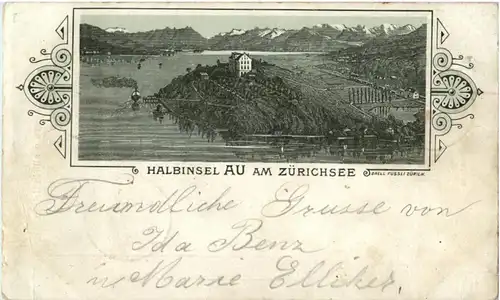 HALBINSEL AU AM ZÜRICHSEE
ORELL FÜSSLI ZÜRICH.
Freundliche Grüsse von
Ida Benz
u Marie Elliker.